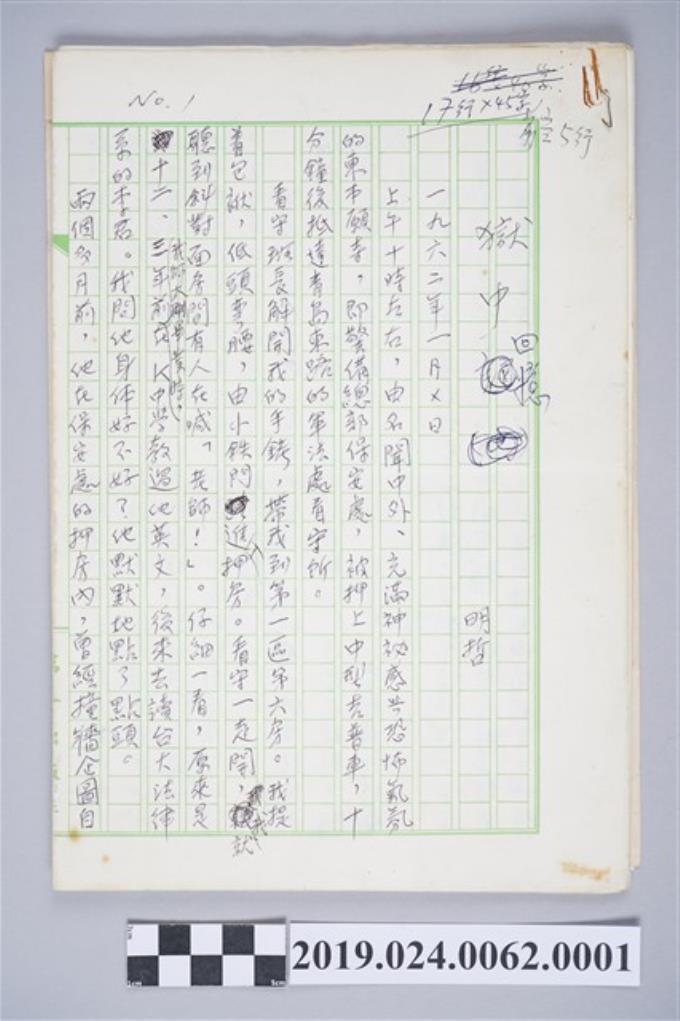 No. 1
17行×45字
5行
獄中回憶
明哲
一九六二年一月×日
上午十時左右，由名聞中外、充滿神祕感與恐怖氣氛
的東本願寺，即警備總部保安處，被押上中型吉普車，十
分鐘後抵達青島東路的軍法處看守所。
看守班長解開我的手銬，帶我到第一區第六房。我提
著包袱，低頭彎腰，由小鐵門進押房。看守一走開，我就
聽到斜對面房間有人在喊「老師！」。仔細一看，原來是
十二、三年前我師大剛畢業時，在K中學教過他英文，後來去讀台大法律
系的李君。我問他身体好不好？他默默地點了點頭。
兩個多月前，他在保安處的押房內，曾經撞牆企圖自
2019.024.0062.0001